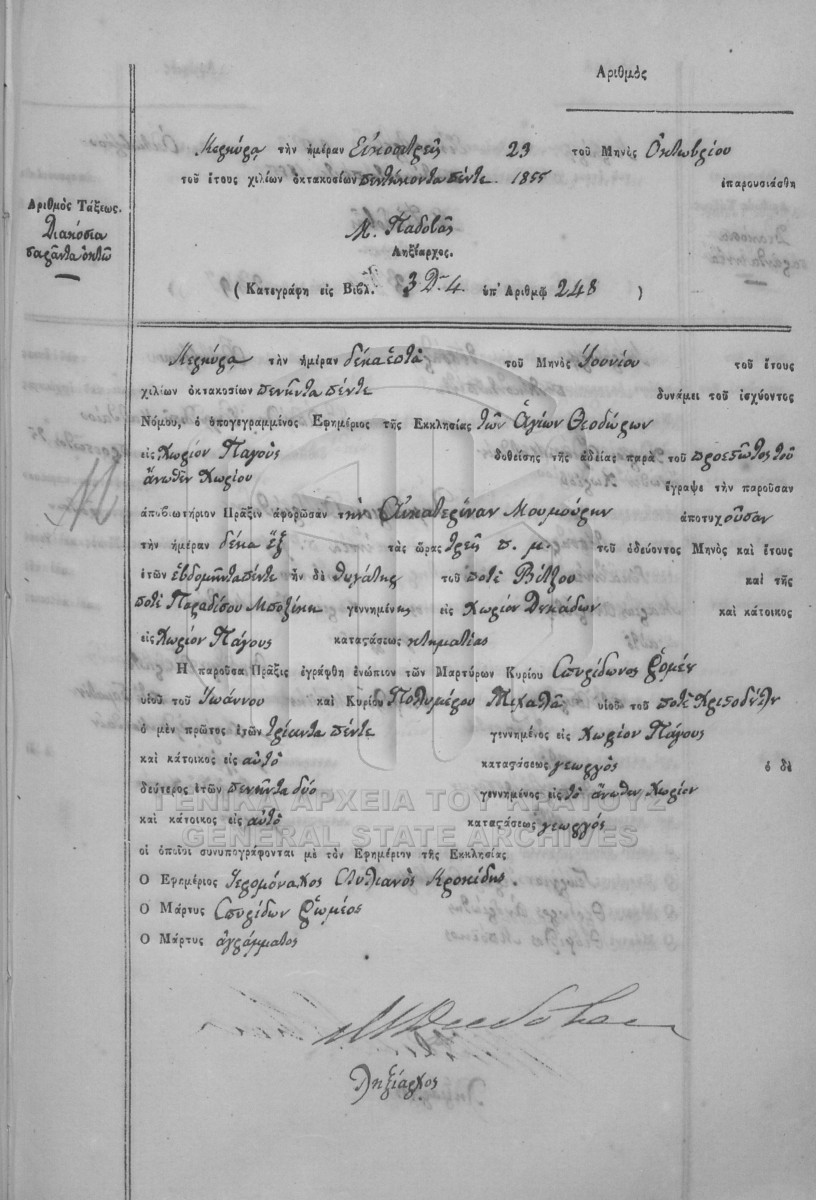 Ἀριθμὸς
Κερκύρα τὴν ἡμέραν Εἰκοσιτρεῖς 23 τοῦ Μηνὸς Ὀκτωβρίου
τοῦ ἔτους χιλίων ὀκτακοσίων πεντήκοντα πέντε 1855 ἐπαρουσιάσθη
Ἀριθμὸς Τάξεως.
Διακόσια
σαράντα ὀκτὼ
Μ. Παδοβᾶς
Ληξίαρχος.
( Κατεγράφη εἰς Βιβλ. 3 4. ὑπ' Ἀριθμῷ 248 )
Κερκύρα τὴν ἡμέραν δέκα ἑπτὰ τοῦ Μηνὸς Ἰουνίου τοῦ ἔτους
χιλίων ὀκτακοσίων πενῆντα πέντε δυνάμει τοῦ ἰσχύοντος
Νόμου, ὁ ὑπογεγραμμένος Ἐφημέριος τῆς Ἐκκλησίας τῶν Ἁγίων Θεοδώρων
εἰς Χωρίον Πάγους δοθείσης τῆς ἀδείας παρὰ τοῦ προεστῶτος τοῦ
ἄνωθεν Χωρίου ἔγραψε τὴν παροῦσαν
ἀποβιωτήριον Πρᾶξιν ἀφορῶσαν τὴν Αἰκατερῖναν Μουμούρην ἀποτυχοῦσαν
τὴν ἡμέραν δέκα ἓξ τὰς ὥρας τρεῖς π. μ. τοῦ ὁδεύοντος Μηνὸς καὶ ἔτους
ἐτῶν ἑβδομῆντα πέντε ἦν δὲ θυγάτης τοῦ ποτὲ Βίτζου καὶ τῆς
ποτὲ Παραδίσου Μποζίκη γεννημένης εἰς Χωρίον Δεκάδων καὶ κάτοικος
εἰς Χωρίον Πάγους καταστάσεως κτηματίας
Ἡ παροῦσα Πρᾶξις ἐγράφθη ἐνώπιον τῶν Μαρτύρων Κυρίου Σπυρίδωνος Ῥομέν
υἱοῦ τοῦ Ἰωάννου καὶ Κυρίου Πολυμέρου Μιχαλᾶ υἱοῦ τοῦ ποτὲ
ὁ μὲν πρῶτος ἐτῶν τριάντα πέντε γεννημένος εἰς Χωρίον Πάγους
καὶ κάτοικος εἰς αὐτὸ καταστάσεως γεωργὸς ὁ δὲ
δεύτερος ἐτῶν πενῆντα δύο γεννημένος εἰς τὸ ἄνωθεν Χωρίον
καὶ κάτοικος εἰς αὐτὸ καταστάσεως γεωργός
οἱ ὁποῖοι συνυπογράφονται μὲ τὸν Ἐφημέριον τῆς Ἐκκλησίας
Ὁ Ἐφημέριος Ἱερομόναχος Στυλιανὸς Κροκίδης.
Ὁ Μάρτυς Σπυρίδων Ῥωμέος
Ὁ Μάρτυς ἀγράμματος
Ληξίαρχος
ΓΕΝΙΚΑ ΑΡΧΕΙΑ ΤΟΥ ΚΡΑΤΟΥΣ
GENERAL STATE ARCHIVES